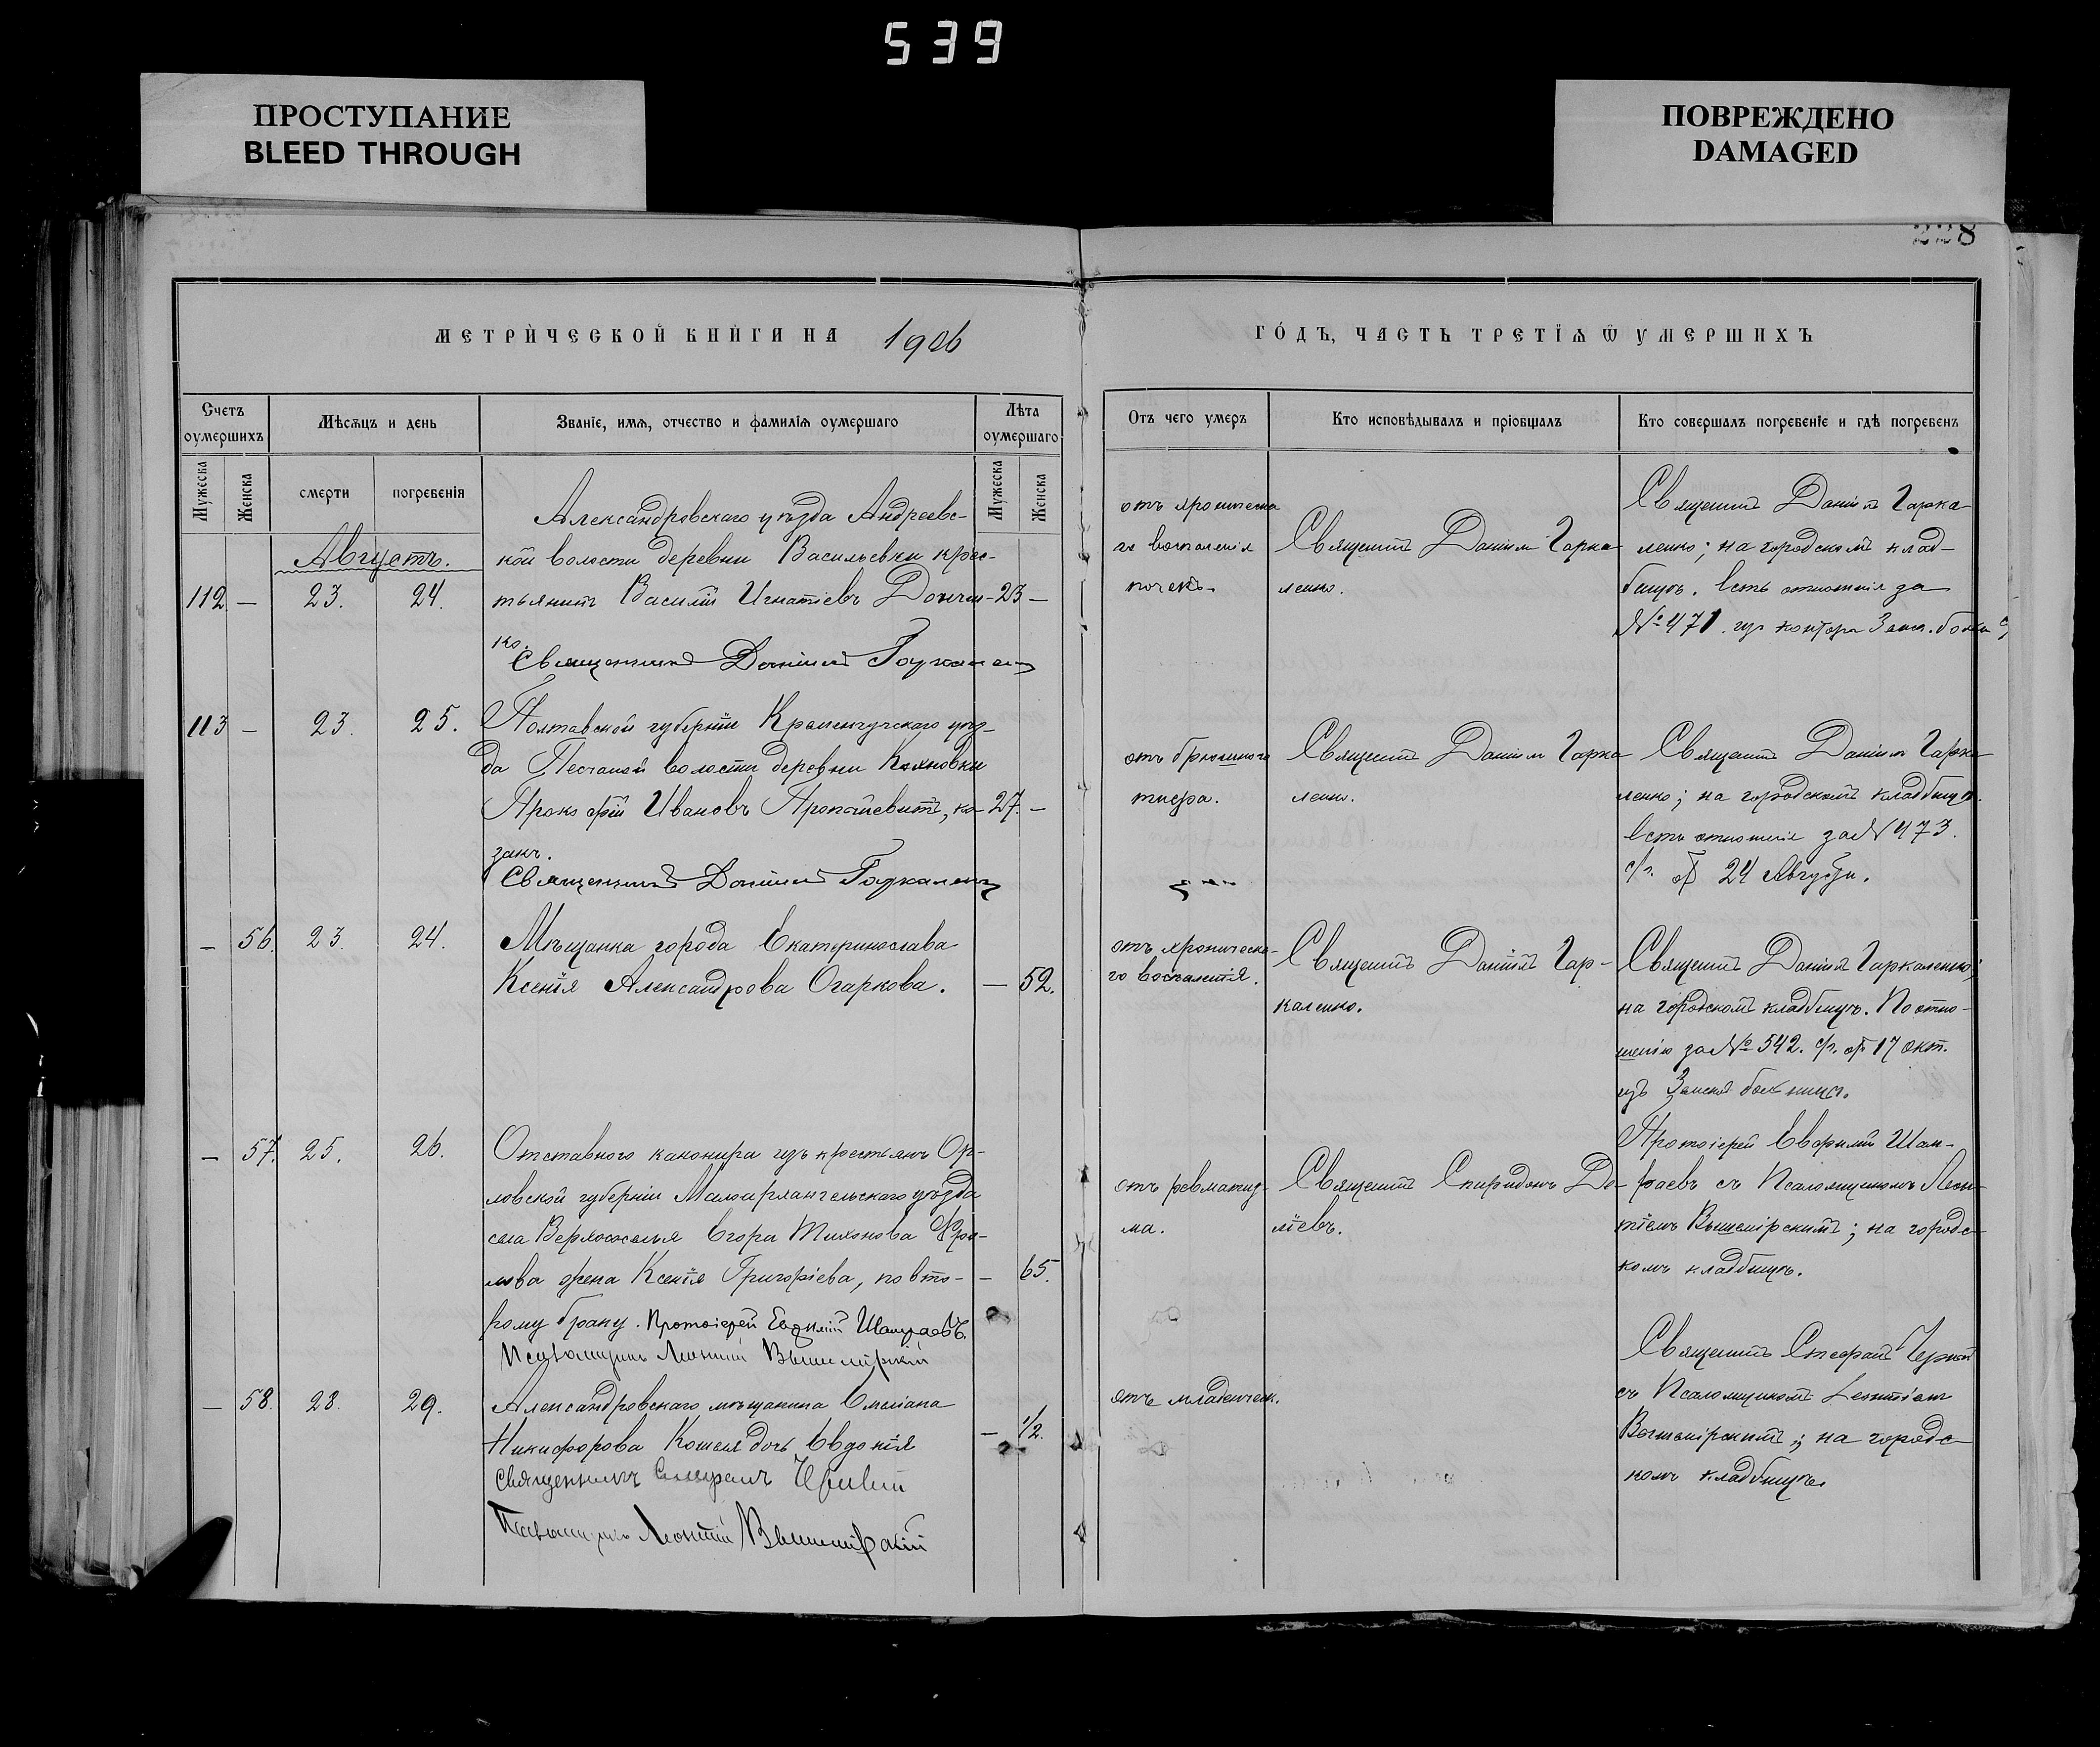 539
ПРОСТУПАНИЕ
BLEED THROUGH
ПОВРЕЖДЕНО
DAMAGED
228
МЕТРИ́ЧЕСКОЙ КНИ́ГИ НА 1906
ГО́ДЪ, ЧАСТЬ ТРЕТІѦ Ѿ УМЕРШИХЪ
Счетъ оумершихъ
Мѣсѧцъ и день
Званіе, имѧ, отчество и фамиліѧ оумершаго
Лѣта оумершаго
Отъ чего умеръ
Кто исповѣдывалъ и пріобщалъ
Кто совершалъ погребеніе и гдѣ погребенъ
Мужеска
Женска
смерти
погребенія
Мужеска
Женска
Августъ.
112 — 23. 24.
Александровскаго уѣзда Андреевс-
кой волости деревни Васильевки крес-
тьянинъ Василій Игнатіевъ Дончен-
ко.
23 —
Священникъ Даніилъ Гаркаленко
отъ хроническа
го воспаленія
почекъ
Священникъ Даніилъ Гарка
ленко.
Священникъ Даніилъ Гарка
ленко; на городскомъ клад-
бищѣ. Есть отношеніе за
№ 471
113 — 23. 25.
Полтавской губерніи Кременчугскаго уѣз-
да Песчаной волости деревни Кохновки
Прокофій Ивановъ, ко-
закъ.
27. —
Священникъ Даніилъ Гаркаленко
отъ брюшного
тифа.
Священникъ Даніилъ Гарка
ленко.
Священникъ Даніилъ Гарка
ленко; на городскомъ кладбищѣ.
Есть отношеніе за № 473.
с/г. отъ 24 Августа.
— 56. 23. 24.
Мѣщанка города Екатеринослава
Ксенія Александрова Огаркова.
— 52.
отъ хроническа-
го воспаленія.
Священникъ Даніилъ Гар-
каленко.
Священникъ Даніилъ Гаркаленко;
на городскомъ кладбищѣ. По отно-
шенію за № 542. с/г. отъ 17 окт.
изъ Земской больницы.
— 57. 25. 26.
Отставного канонира изъ крестьянъ Ор-
ловской губерніи Малоархангельскаго уѣзда
села Егора Тихонова Фро-
лова жена Ксенія Григоріева, по вто-
рому браку. Протоіерей Евфимій
— 65.
Псаломщикъ Леонтій Вышемірскій
отъ ревматиз-
ма.
Священникъ Спиридонъ Де-
ліевъ.
Протоіерей Евфимій Шам-
раевъ съ Псаломщикомъ Леон-
тіемъ Вышемірскимъ; на городс-
комъ кладбищѣ.
— 58. 28. 29.
Александровскаго мѣщанина Емеліана
Никифорова Кошеля дочь Евдокія
— 1/2.
Священникъ Стефанъ
Псаломщикъ Леонтій Вышемірскій
отъ младенческ.
Священникъ Стефанъ
съ Псаломщикомъ Леонтіемъ
Вышемірскимъ; на городс-
комъ кладбищѣ.